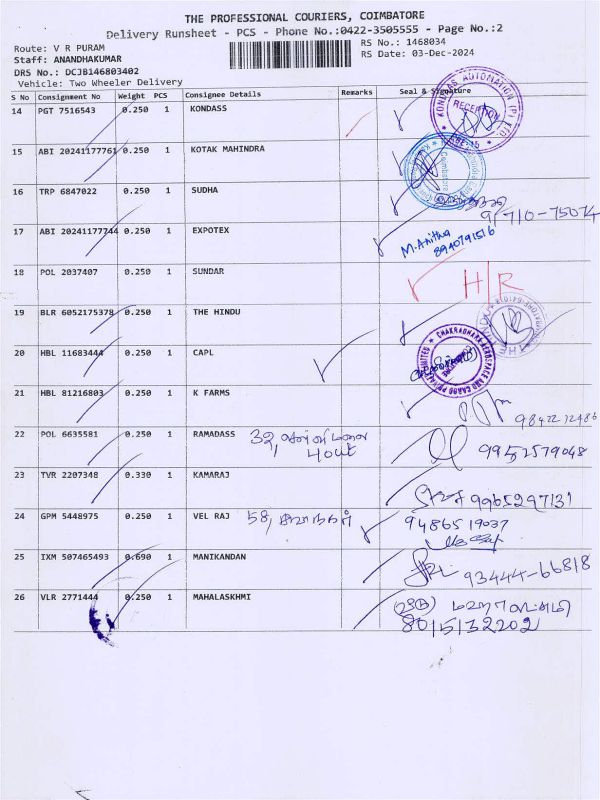 THE PROFESSIONAL COURIERS, COIMBATORE
Delivery Runsheet - PCS - Phone No.:0422-3505555 - Page No.:2
Route: V R PURAM
RS No.: 1468034
Staff: ANANDHAKUMAR
RS Date: 03-Dec-2024
DRS No.: DCJB146803402
Vehicle: Two Wheeler Delivery
S No Consignment No Weight PCS Consignee Details Remarks Seal & Signature
14 PGT 7516543 0.250 1 KONDASS
KONDASS AUTOMATION (P) LTD.
RECEPTION
15 ABI 20241177761 0.250 1 KOTAK MAHINDRA
Coimbatore
16 TRP 6847022 0.250 1 SUDHA
97710-75074
17 ABI 20241177744 0.250 1 EXPOTEX M.Anitha
8940791516
18 POL 2037407 0.250 1 SUNDAR H/R
19 BLR 6052175378 0.250 1 THE HINDU
20 HBL 11683444 0.250 1 CAPL
21 HBL 81216803 0.250 1 K FARMS
9842212486
22 POL 6635581 0.250 1 RAMADASS 32,
9952579048
23 TVR 2207348 0.330 1 KAMARAJ 9965297131
24 GPM 5448975 0.250 1 VEL RAJ 58, 9486519037
25 IXM 507465493 0.690 1 MANIKANDAN 93444-66818
26 VLR 2771444 0.250 1 MAHALASKHMI
8015132202